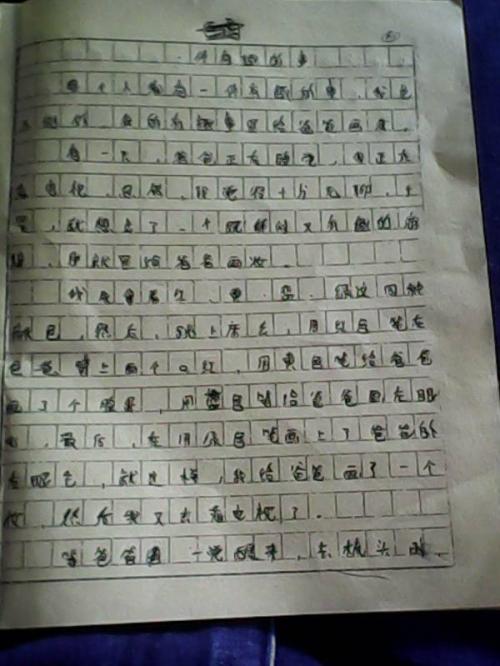 件有趣的事
每个人都有一件有趣的事，我也
不例外，我的有趣事是给爸爸画妆。
有一天，爸爸正在睡觉，我正在
看电视，忽然，我觉得十分无聊，于
是，就想出了一个既解闷又有趣的游
戏，那就是给爸爸画妆。
我拿着红、黄、蓝、绿这四种
颜色，然后，我上床去，用红色笔在
爸爸嘴上画个口红，用黄色笔给爸爸
画了个脸，用蓝色笔给爸爸画左眼
，最后，在用绿色笔画上了爸爸的
右眼，就这样，我给爸爸画了一个
妆，然后我又去看电视了。
等爸爸一觉醒来，去枕头